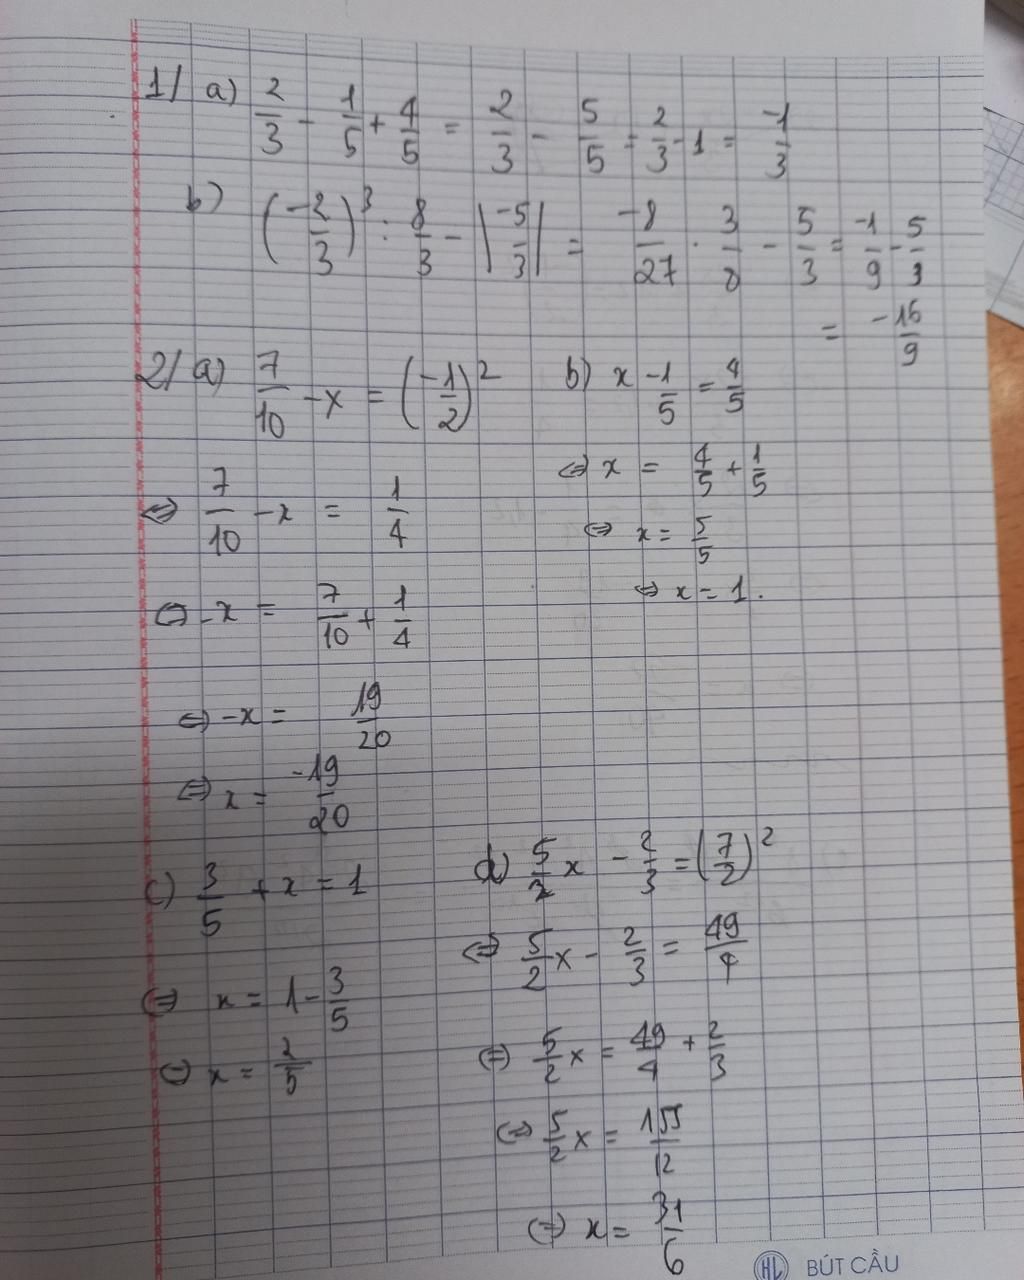 1/ a) 2/3 - 1/5 + 4/5 = 2/3 - 5/5 = 2/3 - 1 = -1/3
b) (-2/3)^3 : 8/3 - |-5/3| = -8/27 . 3/8 - 5/3 = -1/9 - 5/3
= -16/9
2/ a) 7/10 - x = (-1/2)^2
⇔ 7/10 - x = 1/4
⇔ -x = 7/10 + 1/4
⇔ -x = 19/20
⇔ x = -19/20
b) x - 1/5 = 4/5
⇔ x = 4/5 + 1/5
⇔ x = 5/5
⇔ x = 1.
c) 3/5 + x = 1
⇔ x = 1 - 3/5
⇔ x = 2/5
d) 5/2 x - 2/3 = (7/2)^2
⇔ 5/2 x - 2/3 = 49/4
⇔ 5/2 x = 49/4 + 2/3
⇔ 5/2 x = 155/12
⇔ x = 31/6
HL BÚT CẦU